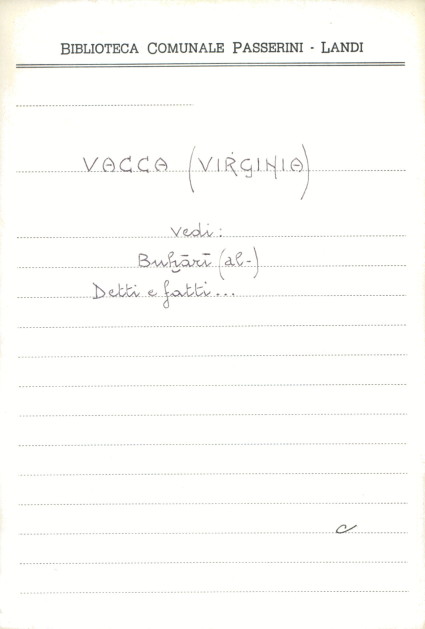 BIBLIOTECA COMUNALE PASSERINI - LANDI
VACCA (VIRGINIA)
Vedi:
Buḫārī (al-)
Detti e fatti...
c